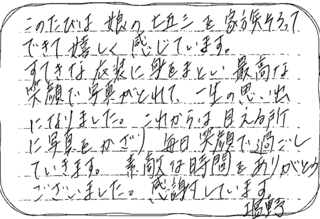 このたびは 娘の七五三を家族そろって
できて嬉しく感じています。
すてきな衣装に身をまとい 最高な
笑顔で写真がとれて、一生の思い出
になりました。これからは見える所
に写真をかざり 毎日笑顔で過ごし
ていきます。素敵な時間をありがとう
ございました。感謝しています。
塩野